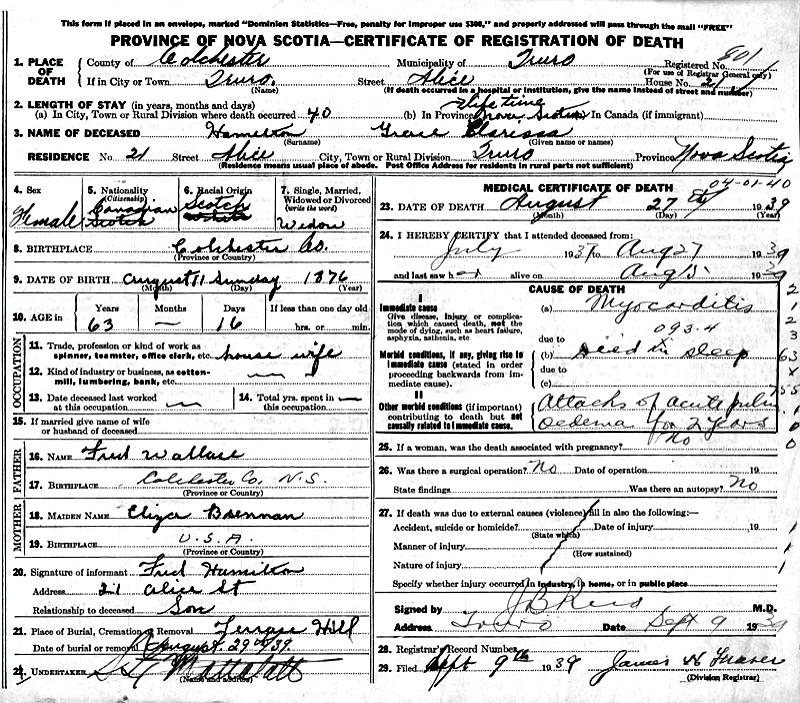 This form if placed in an envelope, marked "Dominion Statistics—Free, penalty for improper use $300," and properly addressed will pass through the mail "FREE"
PROVINCE OF NOVA SCOTIA—CERTIFICATE OF REGISTRATION OF DEATH
1. PLACE OF DEATH
County of Colchester Municipality of Truro Registered No. 801
(For use of Registrar General only)
If in City or Town Truro. Street Alice House No. 21
(Name) (If death occurred in a hospital or institution, give the name instead of street and number)
2. LENGTH OF STAY (in years, months and days)
(a) In City, Town or Rural Division where death occurred 40 (b) In Province lifetime Nova Scotia In Canada (if immigrant)
3. NAME OF DECEASED Hamilton Clarissa
(Surname) (Given name or names)
RESIDENCE No. 21 Street Alice City, Town or Rural Division Truro Province Nova Scotia
(Residence means usual place of abode. Post Office Address for residents in rural parts not sufficient)
4. Sex Female
5. Nationality (Citizenship) Canadian Scotch
6. Racial Origin Scotch White
7. Single, Married, Widowed or Divorced (write the word) Widow
8. BIRTHPLACE Colchester Co.
(Province or Country)
9. DATE OF BIRTH August 11 Sunday 1876
(Month) (Day) (Year)
10. AGE in Years 63 Months — Days 16 If less than one day old hrs. or min.
OCCUPATION
11. Trade, profession or kind of work as spinner, teamster, office clerk, etc. house wife
12. Kind of industry or business, as cotton-mill, lumbering, bank, etc. —
13. Date deceased last worked at this occupation —
14. Total yrs. spent in this occupation —
15. If married give name of wife or husband of deceased
FATHER
16. NAME Fred Wallace
17. BIRTHPLACE Colchester Co, N.S.
(Province or Country)
MOTHER
18. MAIDEN NAME Eliza Brennan
19. BIRTHPLACE U.S.A.
(Province or Country)
20. Signature of informant Fred Hamilton
Address 21 Alice St
Relationship to deceased Son
21. Place of Burial, Cremation or Removal Terrace Hill
Date of burial or removal August 29th/39.
22. UNDERTAKER
(Name and address)
MEDICAL CERTIFICATE OF DEATH
04-01-40
23. DATE OF DEATH August 27th 1939
(Month) (Day) (Year)
24. I HEREBY CERTIFY that I attended deceased from:
July 1937 to Aug 27 1939
and last saw her alive on Aug 15 1939
CAUSE OF DEATH
I
Immediate cause
Give disease, injury or complication which caused death, not the mode of dying, such as heart failure, asphyxia, asthenia, etc.
(a) Myocarditis
093.4
due to
Morbid conditions, if any, giving rise to immediate cause (stated in order proceeding backwards from immediate cause).
(b) died in sleep
due to
(c)
II
Other morbid conditions (if important) contributing to death but not causally related to immediate cause.
Attacks of acute pulm. oedema for 2 years
25. If a woman, was the death associated with pregnancy? no
26. Was there a surgical operation? No Date of operation 19
State findings Was there an autopsy? No
27. If death was due to external causes (violence) fill in also the following:—
Accident, suicide or homicide? Date of injury 19
(State which)
Manner of injury
(How sustained)
Nature of injury
Specify whether injury occurred in industry, in home, or in public place
Signed by J B Reid M.D.
Address Truro Date Sept 9 1939
28. Registrar's Record Number
29. Filed Sept 9th 1939 James H
(Division Registrar)